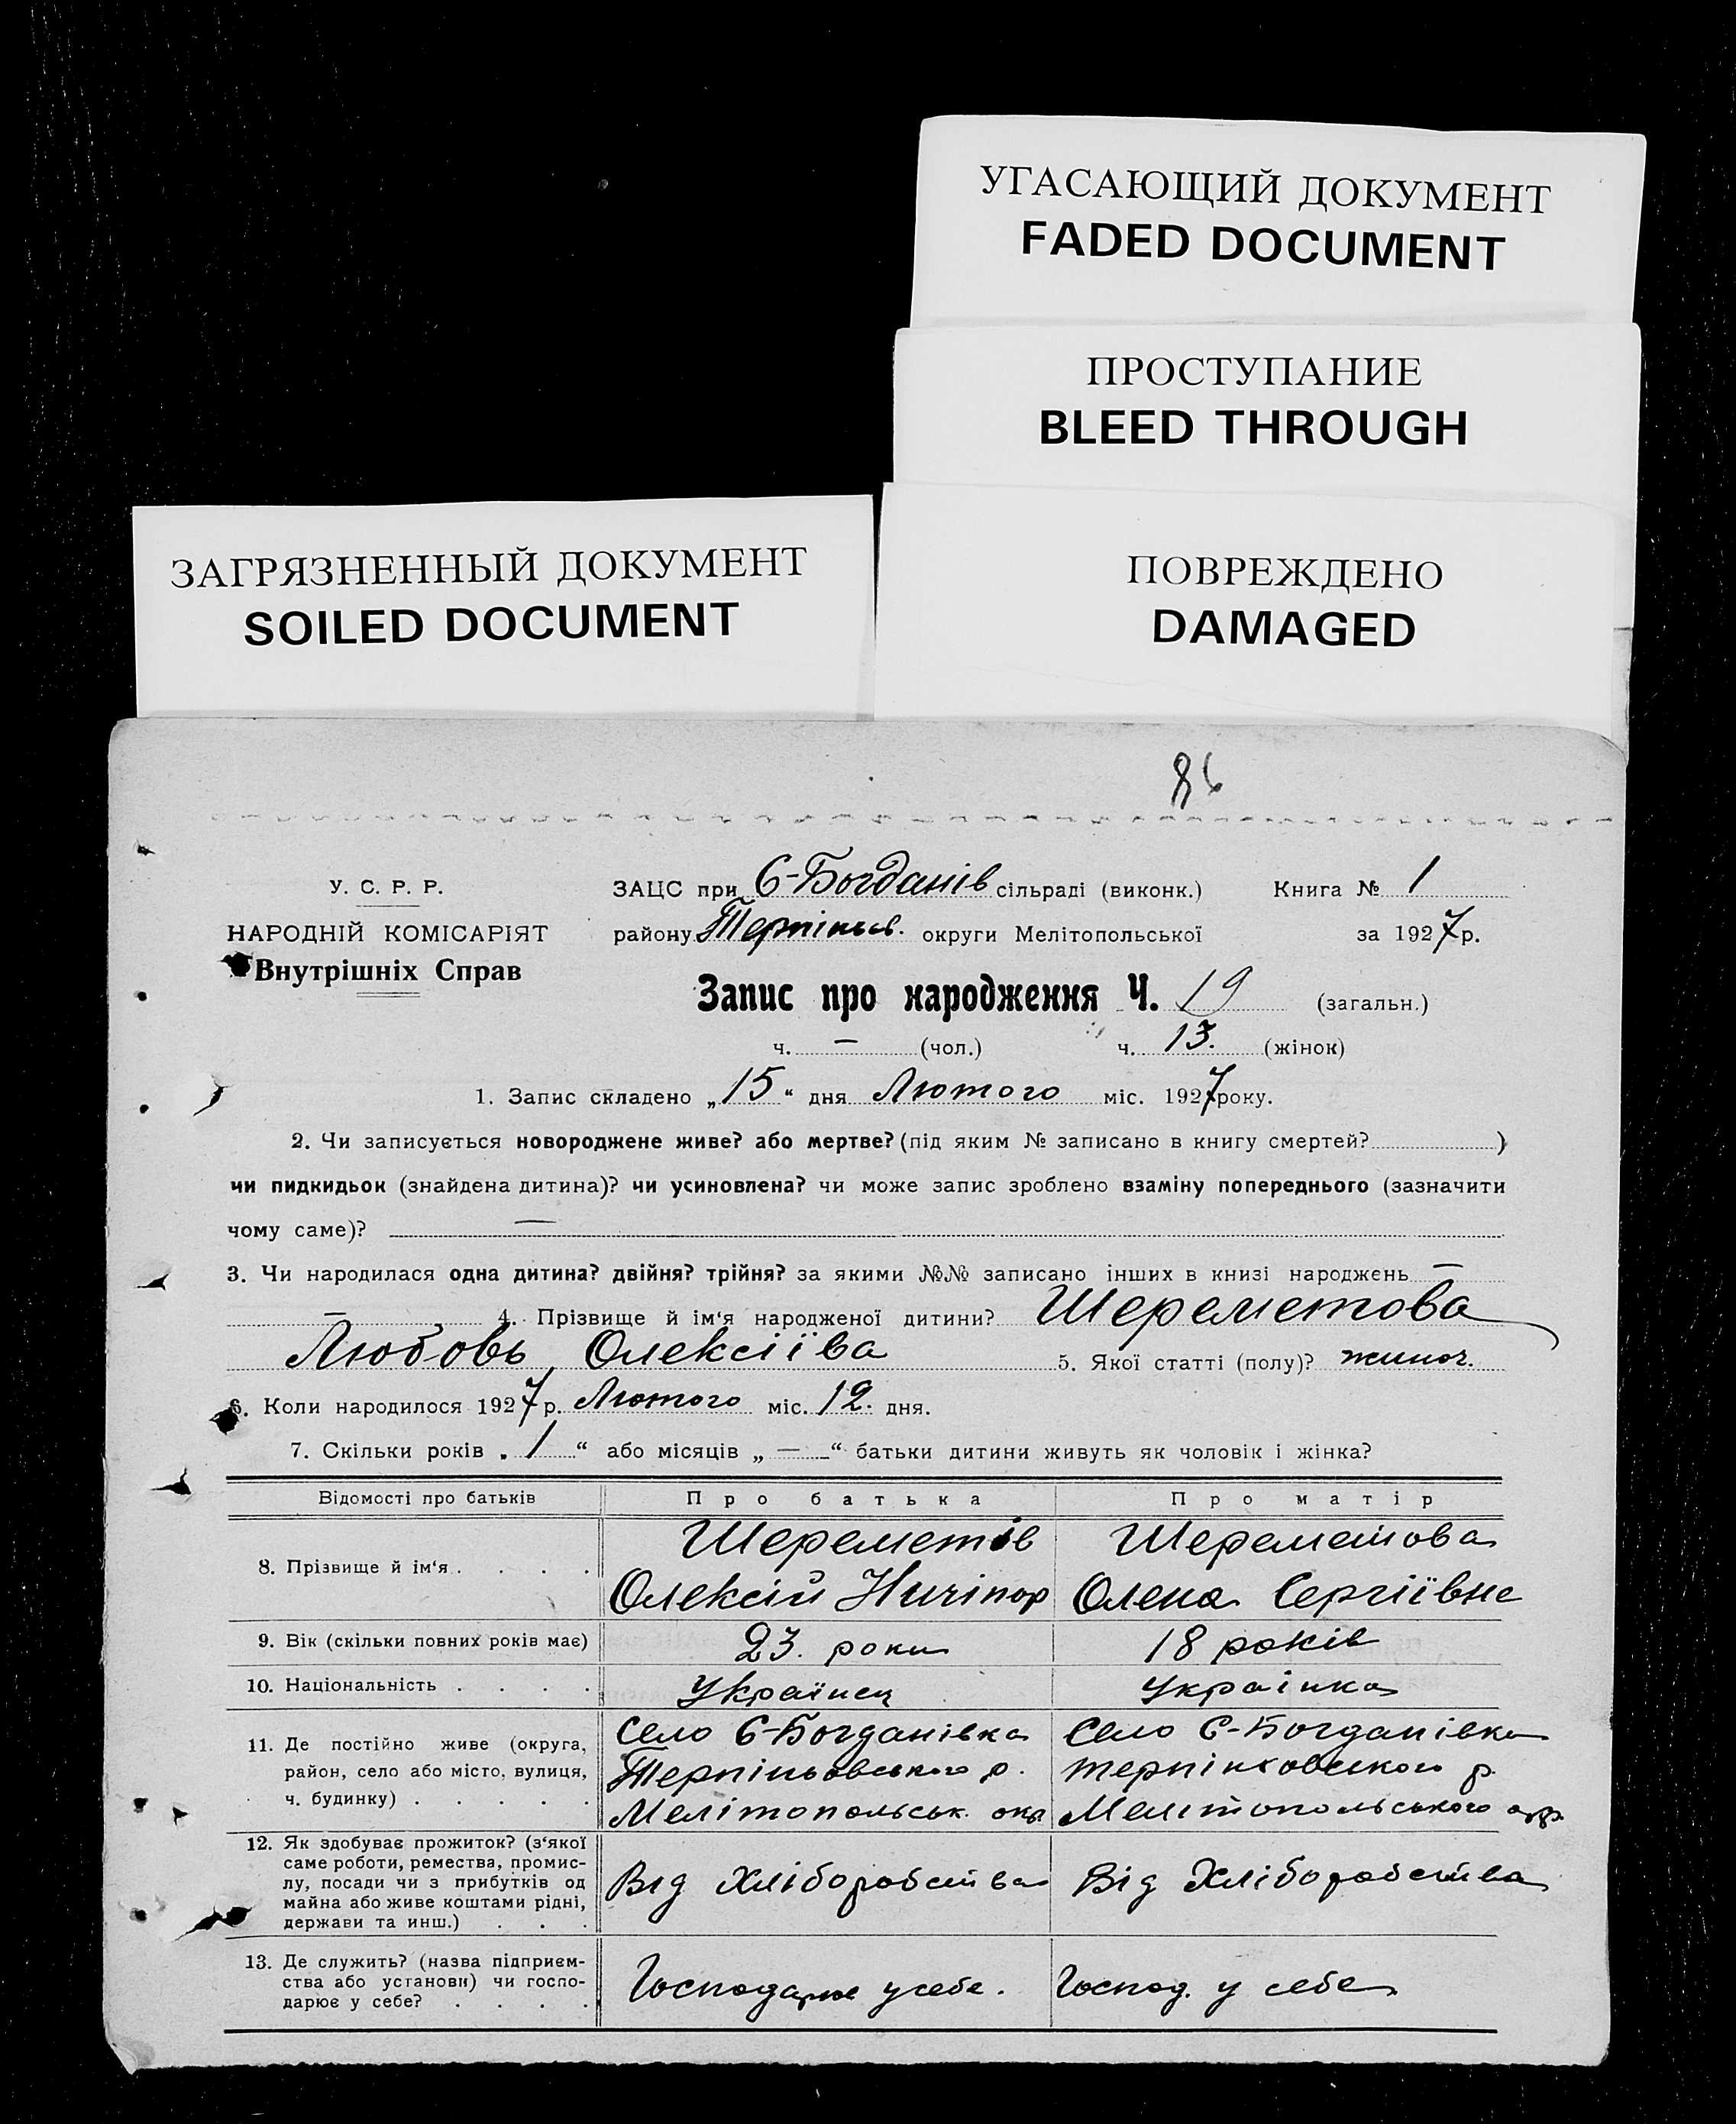 УГАСАЮЩИЙ ДОКУМЕНТ
FADED DOCUMENT
ПРОСТУПАНИЕ
BLEED THROUGH
ЗАГРЯЗНЕННЫЙ ДОКУМЕНТ
SOILED DOCUMENT
ПОВРЕЖДЕНО
DAMAGED
86
У. С. Р. Р.
НАРОДНІЙ КОМІСАРІЯТ
Внутрішніх Справ
ЗАЦС при Є-Богданів сільраді (виконк.) Книга № 1
району Терпіньєв. округи Мелітопольської за 1927 р.
Запис про народження Ч. 19 (загальн.)
ч. — (чол.) ч. 13. (жінок)
1. Запис складено „15“ дня Лютого міс. 1927 року.
2. Чи записується новороджене живе? або мертве? (під яким № записано в книгу смертей? )
чи пидкидьок (знайдена дитина)? чи усиновлена? чи може запис зроблено взаміну попереднього (зазначити
чому саме)? —
3. Чи народилася одна дитина? двійня? трійня? за якими №№ записано інших в книзі народжень —
— 4. Прізвище й ім‘я народженої дитини? Шереметова
Любовь Олексіїва 5. Якої статті (полу)? жиноч.
6. Коли народилося 1927 р. Лютого міс. 12. дня.
7. Скільки років „ 1 “ або місяців „ — “ батьки дитини живуть як чоловік і жінка?
Відомості про батьків Про батька Про матір
8. Прізвище й ім‘я . . . .
Шереметів
Олексій Ничіпор
Шереметова
Олена Сергіївна
9. Вік (скільки повних років має) 23. роки 18 років
10. Національність . . . . Українец Українка
11. Де постійно живе (округа,
район, село або місто, вулиця,
ч. будинку) . . . . .
Село Є-Богданівка
Терпіньовського р.
Мелітопольськ. окр.
Село Є-Богданівка
Терпіньовського р.
Мелітопольського окр.
12. Як здобуває прожиток? (з‘якої
саме роботи, ремества, промис-
лу, посади чи з прибутків од
майна або живе коштами рідні,
держави та инш.) . . .
Від Хліборобства
Від Хліборобства
13. Де служить? (назва підприєм-
ства або установи) чи госпо-
дарює у себе? . . . .
Господарює у себе.
Господ. у себе